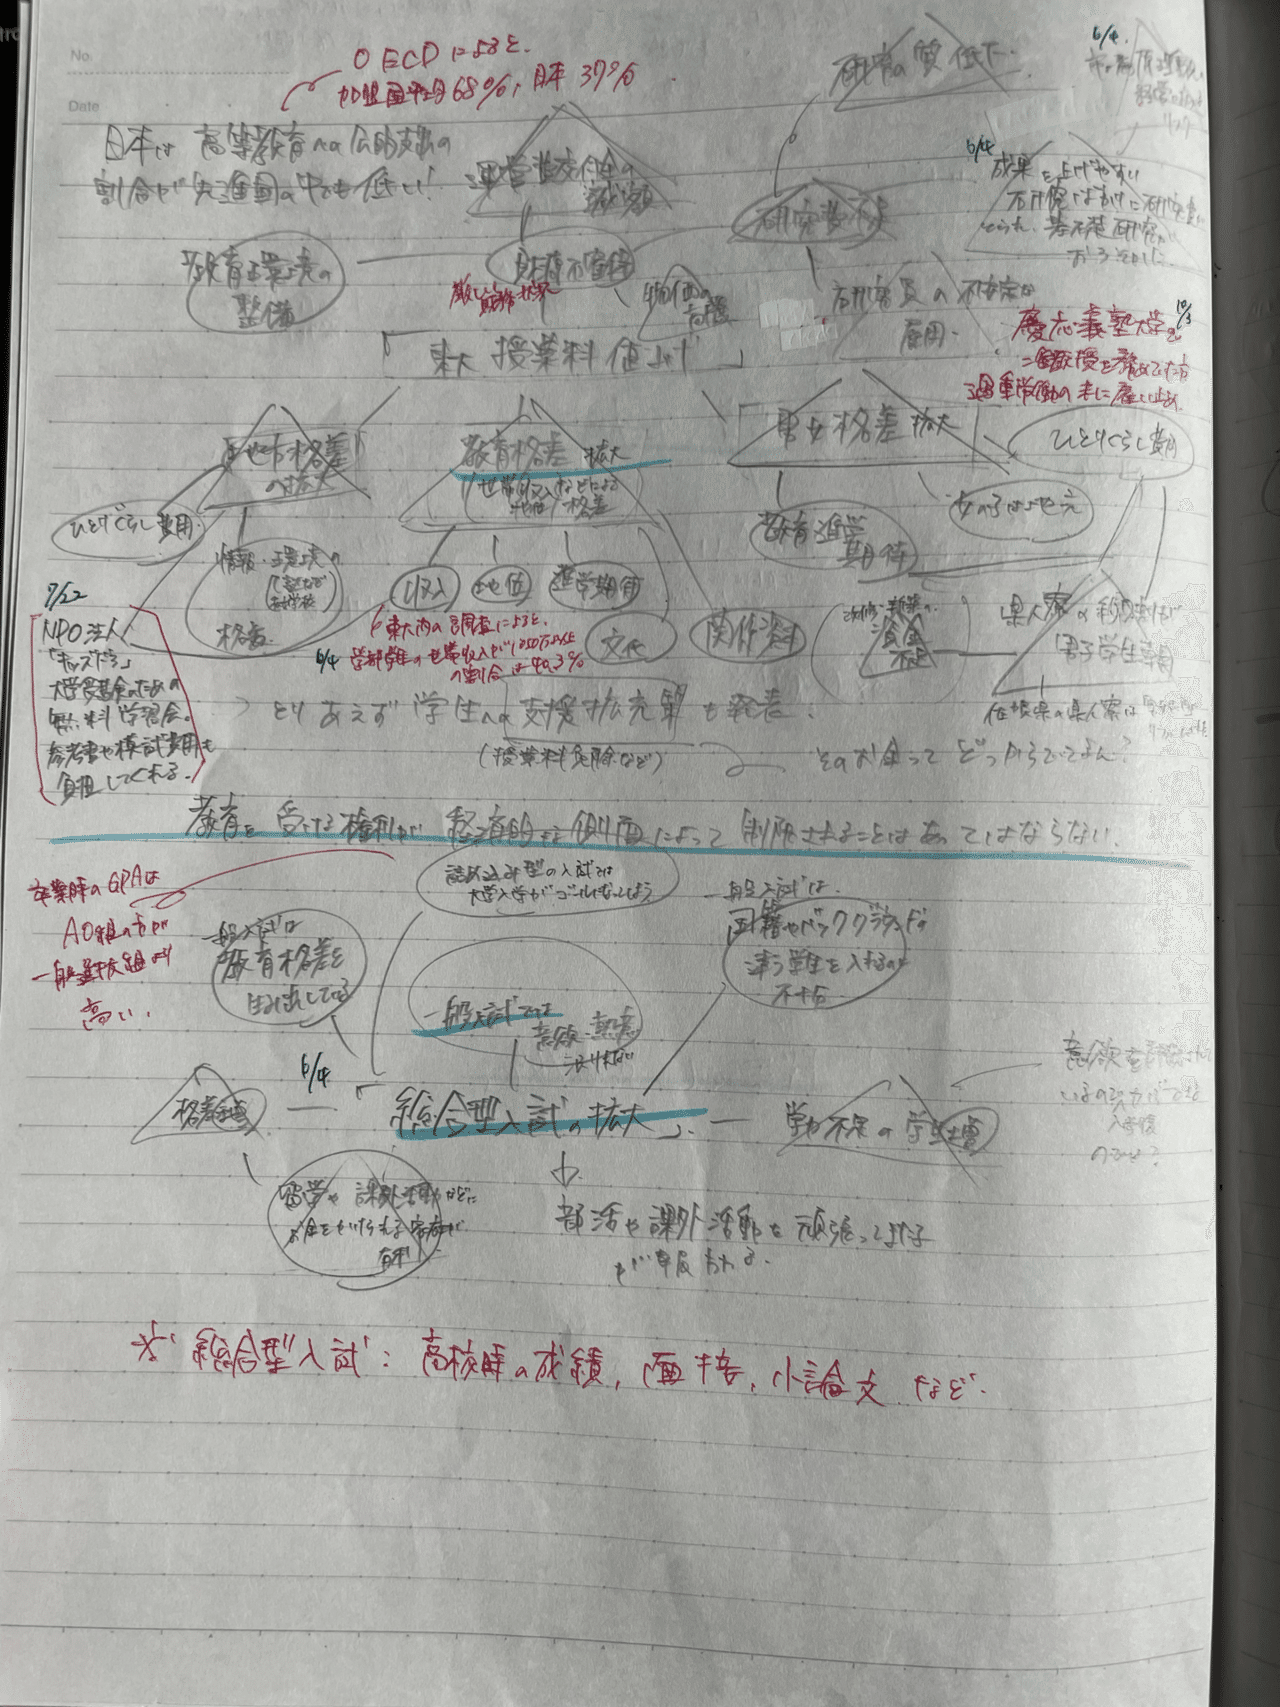 No.
Date
OECDによると、
加盟国平均68%、日本37%
日本は高等教育への公的支出の
割合が先進国の中でも低い!
研究の質低下
6/4
運営費交付金の
減額
研究費不足
6/4
成果を上げやすい
研究ばかりに研究費が
とられ、基礎研究が
おろそかに
教育環境の
整備
財源不審待
厳しい財務状況
物価の
高騰
研究員の不安定な
雇用
10/3
慶応義塾大学で
准教授を務めていた方
過重労働の末に雇い止め
「東大 授業料値上げ」
地方格差
の拡大
教育格差 拡大
(世帯収入などによる
格差
男女格差 拡大
ひとりぐらし費用
ひとりぐらし費用
情報・環境の
格差
収入
地位
進学期待
文化
関係資本
教育進学
期待
女の子は地元
改修・新築の
資金
不足
県人寮の税制が
男子学生専用
佐賀県の県人寮は
7/22
NPO法人
「キッズドア」
大学受験のための
無料学習会。
参考書や模試費用も
負担してくれる。
6/4
東大内の調査によると、
学部学生の世帯収入が1050万以上
の割合は40.3%
とりあえず学生への支援拡充策も発表。
(授業料免除など)
そのお金ってどっからでてるん?
教育を受ける権利が経済的な側面によって制限されることはあってはならない。
卒業時のGPAは
AO組の方が
一般選抜組より
高い。
詰め込み型の入試では
大学入学がゴールになってしまう
一般入試は
教育格差を
生み出している
一般入試では
意欲・熱意
測れない
一般入試は、
国籍やバックグラウンドの
違う学生を入れるのに
不十分
格差
6/4
「総合型入試の拡大」
学力不足の学生増
意欲を評価されて
いるので
入学後
のびる?
留学や課外活動などに
お金をかけられる家庭が
有利
部活や課外活動を頑張ってきた子
が報われる。
※総合型入試:高校時の成績,面接,小論文 など